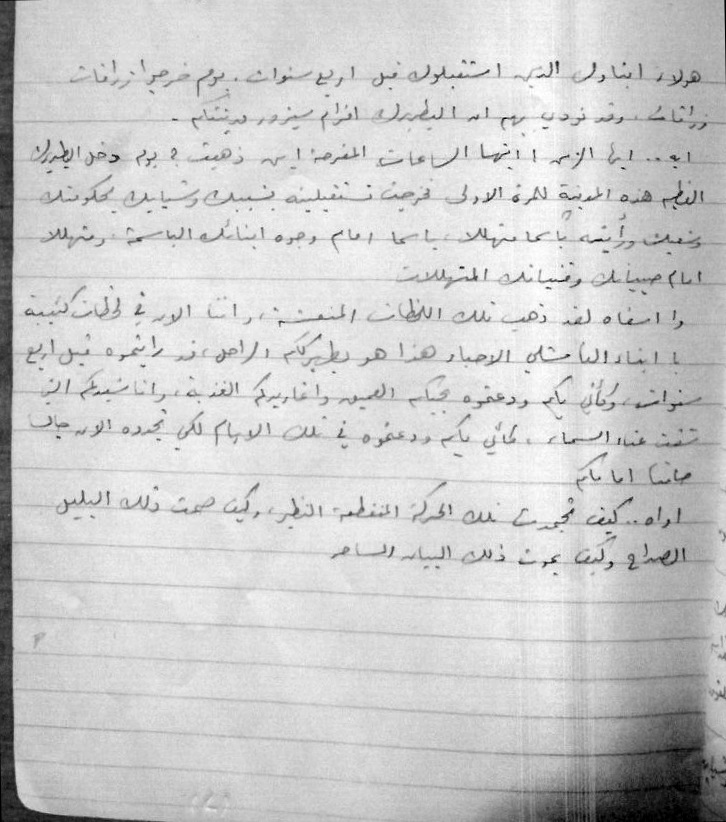 هولاء ابناؤك الذين استقبلوك قبل اربع سنوات. يوم خرجوا زرافات
زرافات، وقد نودي بهم ان البطريرك افرام سيزور مدينتكم .
ايه .. ايها الزمن ! ايتها الساعات المفرحة اين ذهبت ؟ يوم دخل البطريرك
العظيم هذه المدينة للمرة الاولى فخرجت تستقبلينه بشيبك وشبابك بحكومتك
وشعبك ورأيته باسما متهللا، باسما امام وجوه ابنائك الباسمة، ومتهللا
امام صبيانك وفتياتك المتهللات
وا اسفاه لقد ذهبت تلك اللحظات المنعشة، واننا الان في لحظات كئيبة
يا ابناء القامشلي الاحباء هذا هو بطريرككم الراحل، قد رايتموه قبل اربع
سنوات، وكأني بكم ودعتموه بحبكم العميق واغاريدكم العذبة، واناشيدكم التي
شقت عنان السماء، كأني بكم ودعتموه في تلك الايام لكي تجدوه الان جالسا
صامتا امامكم
اواه .. كيف تجمدت تلك الحركة المنقطعة النظير، وكيف صمت ذلك البلبل
الصداح وكيف يموت ذلك البيان الساحر